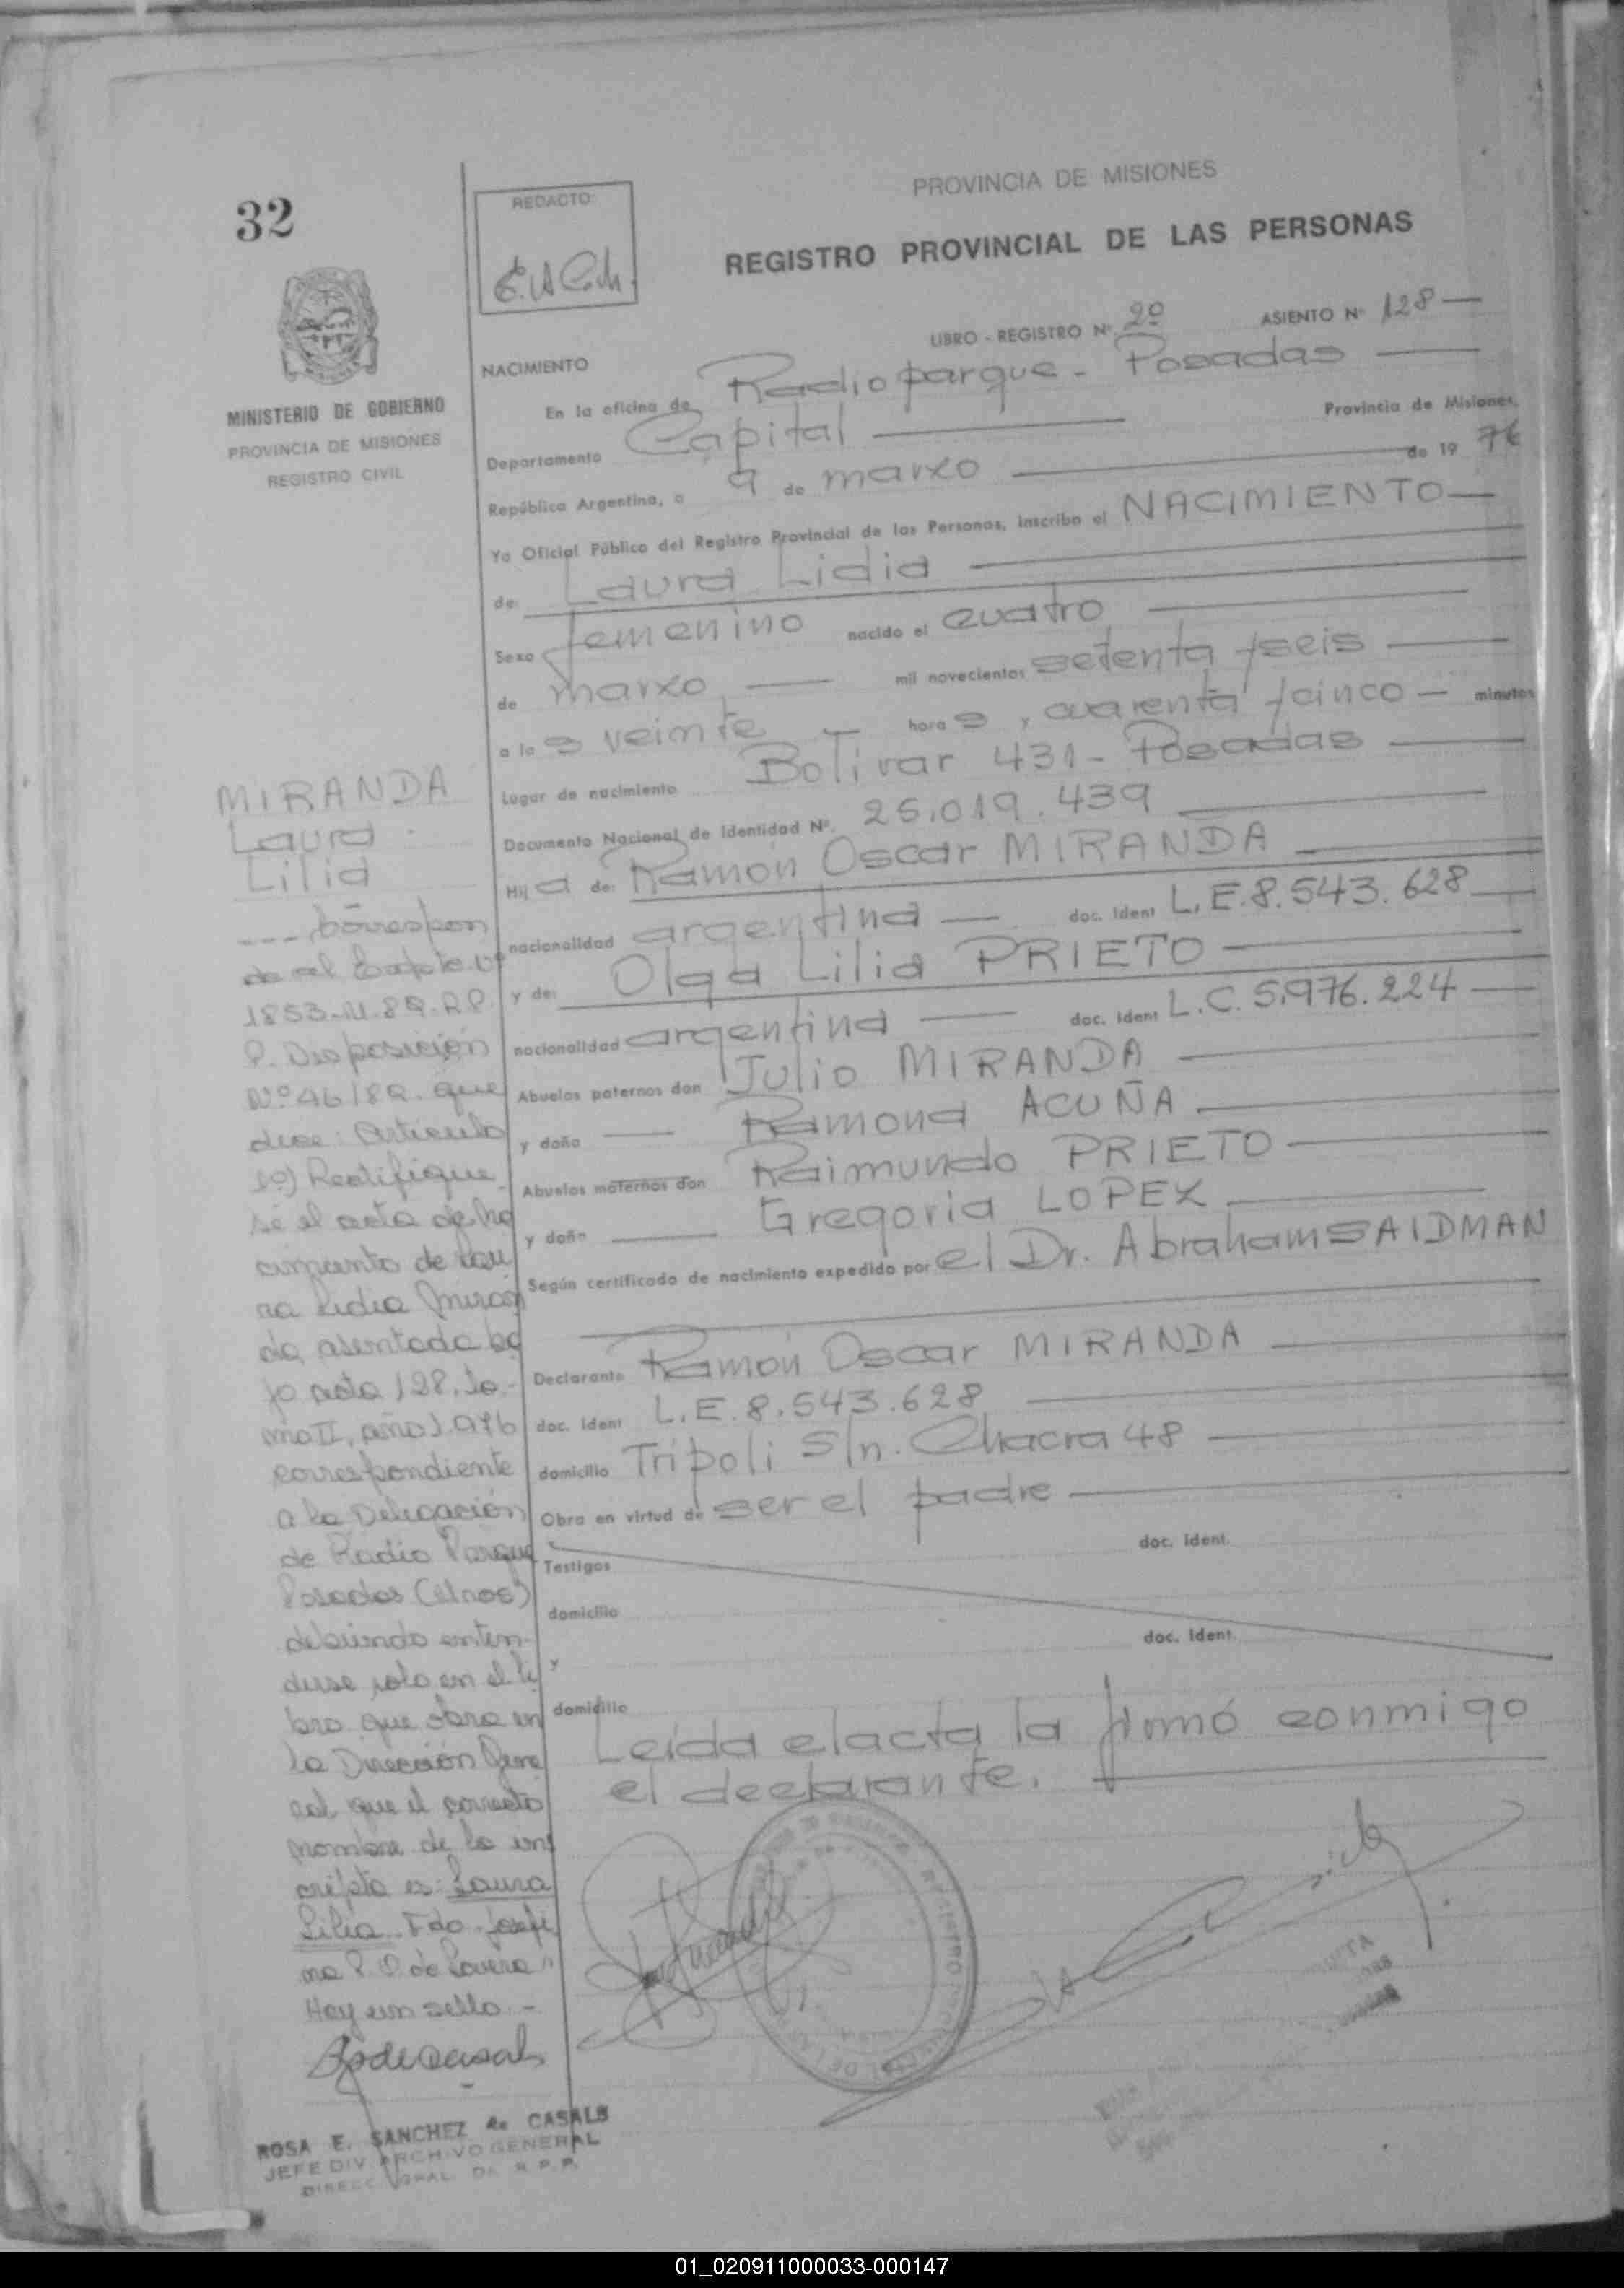 32
REDACTO:
E.A.C.h.
PROVINCIA DE MISIONES
REGISTRO PROVINCIAL DE LAS PERSONAS
LIBRO - REGISTRO Nº 2º ASIENTO Nº 128
MINISTERIO DE GOBIERNO
PROVINCIA DE MISIONES
REGISTRO CIVIL
NACIMIENTO
En la oficina de Radioparque - Posadas
Departamento Capital Provincia de Misiones,
República Argentina, a 9 de marzo de 19 76
Yo Oficial Público del Registro Provincial de las Personas, inscribo el NACIMIENTO
de: Laura Lidia
Sexo femenino nacido el cuatro
de marzo mil novecientos setenta y seis
a las veinte horas y cuarenta y cinco minutos
Lugar de nacimiento Bolívar 431 - Posadas
Documento Nacional de Identidad Nº. 25.019.439
Hija de: Ramón Oscar MIRANDA
nacionalidad argentina doc. Ident L.E.8.543.628
y de: Olga Lilia PRIETO
nacionalidad argentina doc. Ident L.C.5.976.224
Abuelos paternos don Julio MIRANDA
y doña Ramona ACUÑA
Abuelos maternos don Raimundo PRIETO
y doña Gregoria LOPEZ
Según certificado de nacimiento expedido por el Dr. Abraham SAIDMAN
Declarante Ramón Oscar MIRANDA
doc. Ident L.E.8.543.628
domicilio Trípoli S/n. Chacra 48
Obra en virtud de ser el padre
doc. Ident.
Testigos
domicilio
doc. Ident.
y
domicilio
Leída el acta la firmó conmigo
el declarante.
MIRANDA
Laura
Lilia
--- Correspon
de al Expte. Nº
1853-M-89.R.P.
P. Disposición
Nº 46/89. que
dice: Artículo
1º) Rectifique
se el acta de na
cimiento de Lau
ra Lidia Miran
da, asentada ba
jo acta 128, to-
mo II, año 1.976
correspondiente
a la Delegación
de Radio Parque
Posadas
debiendo enten-
derse solo en el li
bro que obra en
la Dirección Gene
ral que el correcto
nombre de la ins
cripta es: Laura
Lilia. Fdo. Josefi
na P. O. de Lovera"
Hay un sello -
ROSA E. SANCHEZ de CASALS
JEFE DIV. ARCHIVO GENERAL
DIRECC. GRAL. DE R.P.P.
01_020911000033-000147